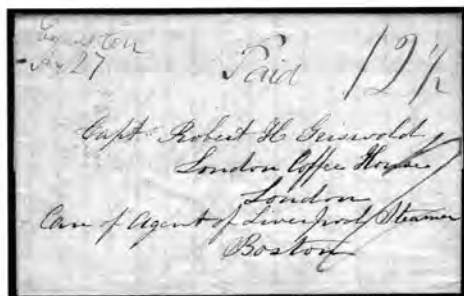 27
Paid 12½
Capt Robert H Griswold
London Coffee House
London
Care of Agent of Liverpool Steamer
Boston